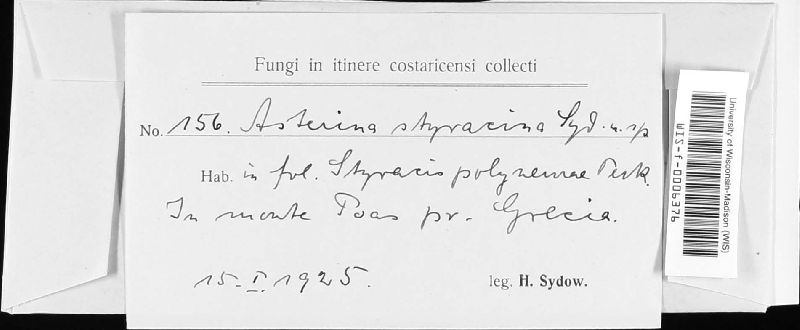 Fungi in itinere costaricensi collecti
No. 156. Asterina styracina Syd. n. sp
Hab. in fol. Styracis polyneurae Perk.
In monte Poas pr. Grecia.
15. I. 1925. leg. H. Sydow.
University of Wisconsin-Madison (WIS)
WIS-f-0006376